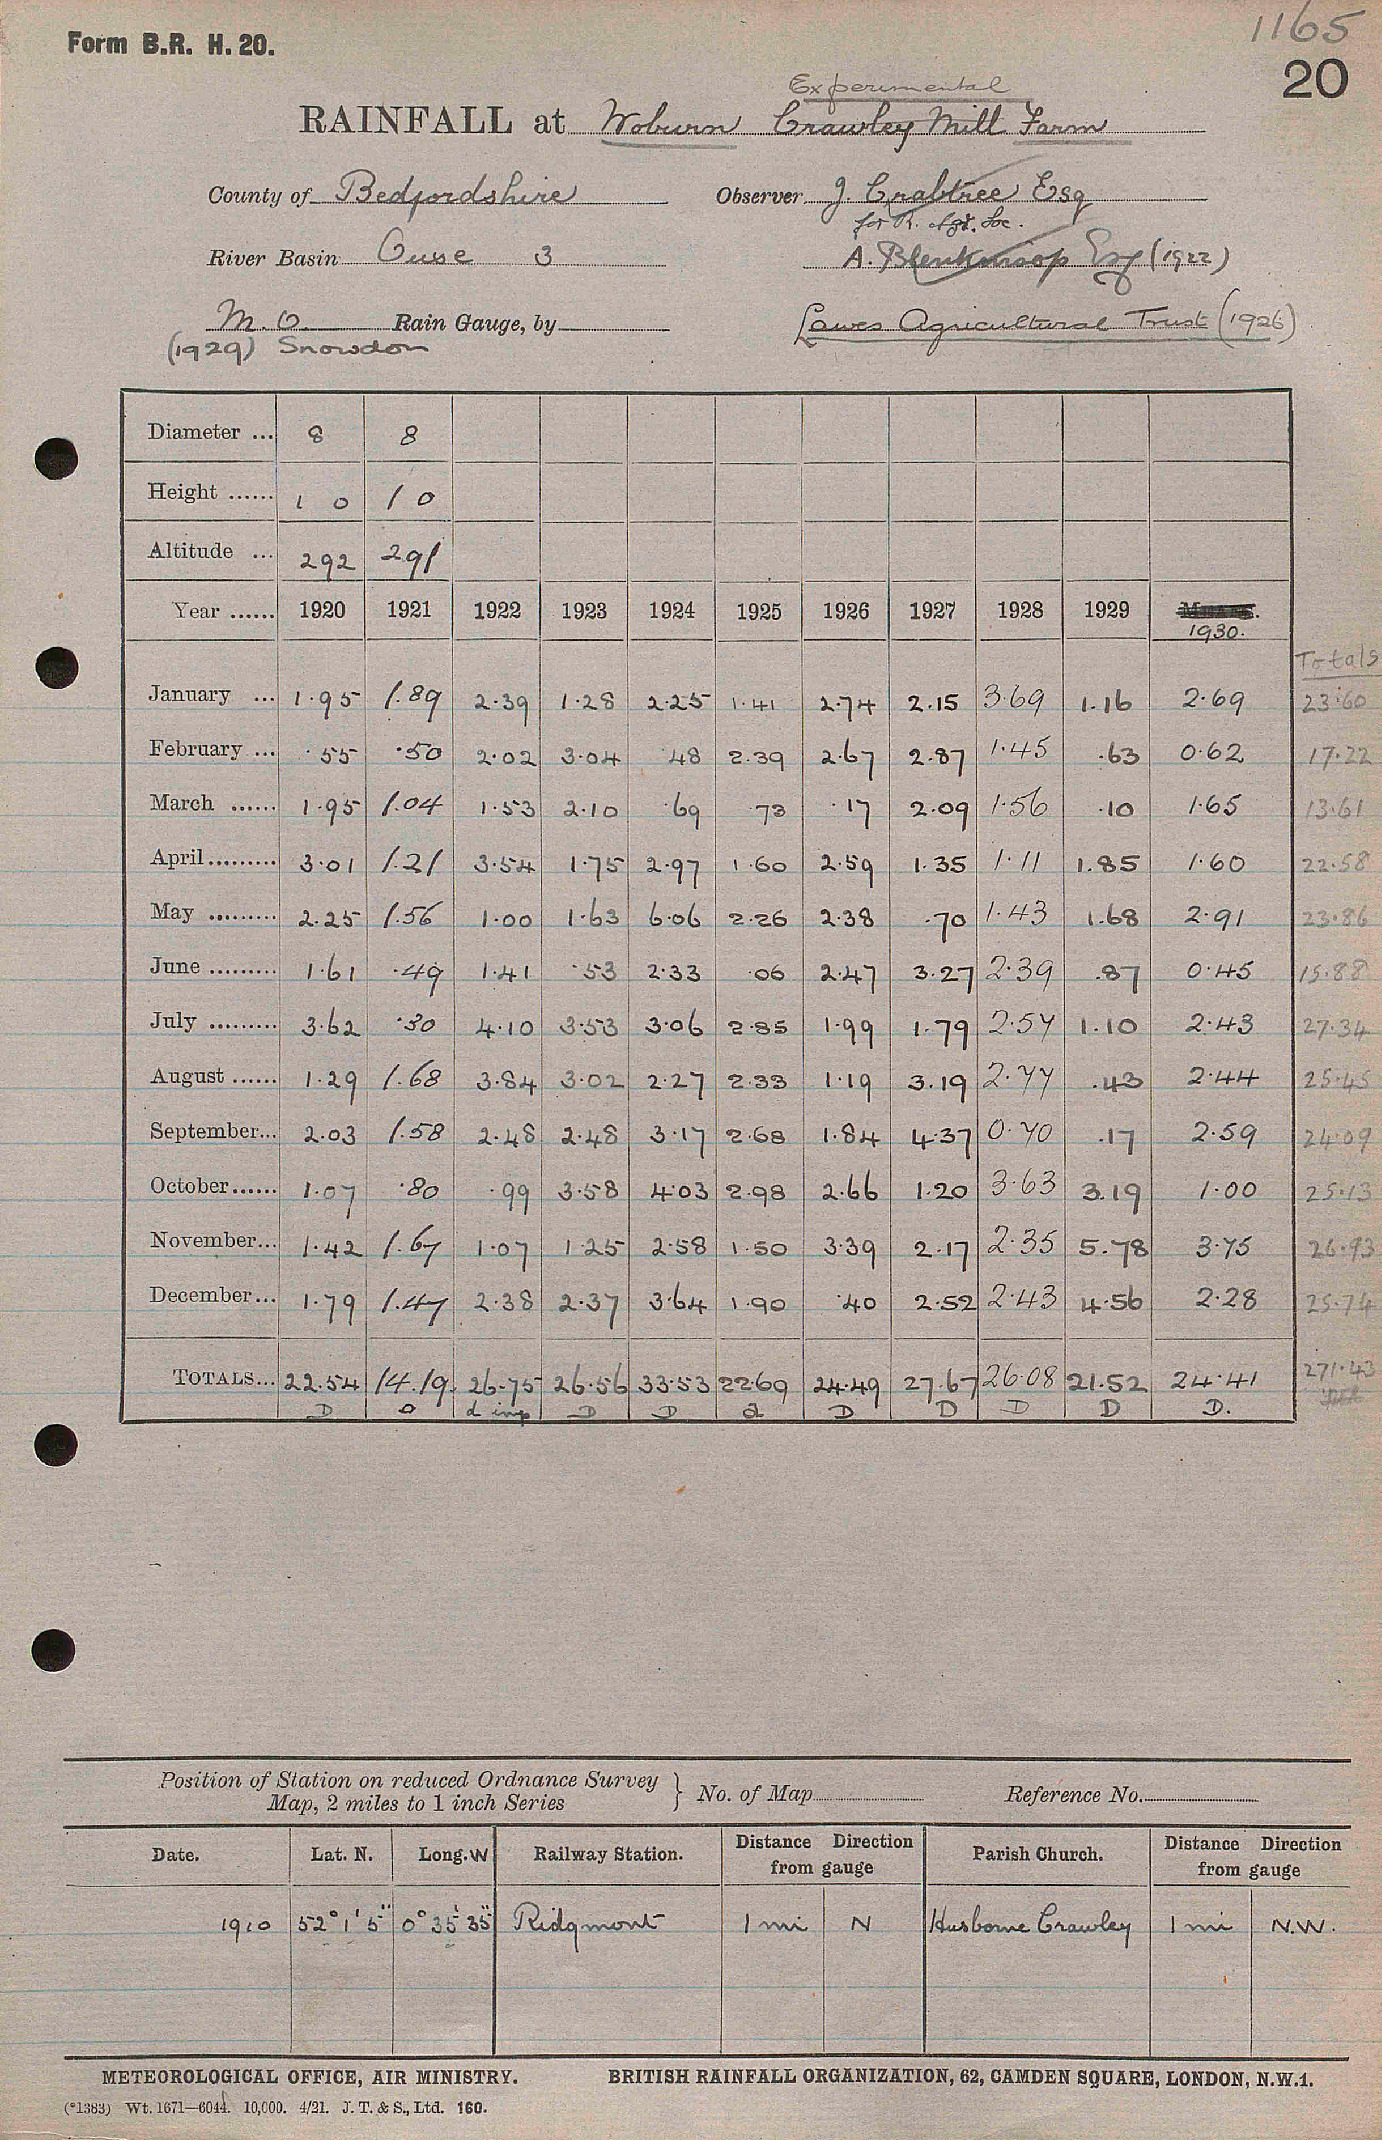 1165
Form B.R. H. 20.
20
Experimental
RAINFALL at Woburn Crawley Mill Farm
County of Bedfordshire Observer J. Crabtree Esq
for R. Agr. Soc.
River Basin Ouse 3 A. Blenkinsop Esq (1922)
M.O. Rain Gauge, by Lawes Agricultural Trust (1926)
(1929) Snowdon
Diameter ... 8 8
Height ...... 1 0 1 0
Altitude ... 292 291
Year ...... 1920 1921 1922 1923 1924 1925 1926 1927 1928 1929
1930.
Totals
January ... 1.95 1.89 2.39 1.28 2.25 1.41 2.74 2.15 3.69 1.16 2.69 23.60
February ... .55 .50 2.02 3.04 .48 2.39 2.67 2.87 1.45 .63 0.62 17.22
March ...... 1.95 1.04 1.53 2.10 .69 .73 .17 2.09 1.56 .10 1.65 13.61
April......... 3.01 1.21 3.54 1.75 2.97 1.60 2.59 1.35 1.11 1.85 1.60 22.58
May ......... 2.25 1.56 1.00 1.63 6.06 2.26 2.38 .70 1.43 1.68 2.91 23.86
June ......... 1.61 .49 1.41 .53 2.33 .06 2.47 3.27 2.39 .87 0.45 15.88
July ......... 3.62 .30 4.10 3.53 3.06 2.85 1.99 1.79 2.57 1.10 2.43 27.34
August ...... 1.29 1.68 3.84 3.02 2.27 2.33 1.19 3.19 2.77 .43 2.44 25.45
September... 2.03 1.58 2.48 2.48 3.17 2.68 1.84 4.37 0.70 .17 2.59 24.09
October...... 1.07 .80 .99 3.58 4.03 2.98 2.66 1.20 3.63 3.19 1.00 25.13
November... 1.42 1.67 1.07 1.25 2.58 1.50 3.39 2.17 2.35 5.78 3.75 26.93
December... 1.79 1.47 2.38 2.37 3.64 1.90 .40 2.52 2.43 4.56 2.28 25.74
TOTALS... 22.54 14.19 26.75 26.56 33.53 22.69 24.49 27.67 26.08 21.52 24.41 271.43
D o d inp D D d D D D D D.
Position of Station on reduced Ordnance Survey
Map, 2 miles to 1 inch Series } No. of Map Reference No.
Date. Lat. N. Long. W Railway Station. Distance Direction from gauge Parish Church. Distance Direction from gauge
1910 52° 1' 5" 0° 35' 35" Ridgmont 1 mi N Husborne Crawley 1 mi N.W.
METEOROLOGICAL OFFICE, AIR MINISTRY. BRITISH RAINFALL ORGANIZATION, 62, CAMDEN SQUARE, LONDON, N.W.1.
(*1383) Wt. 1671—6044. 10,000. 4/21. J. T. & S., Ltd. 160.